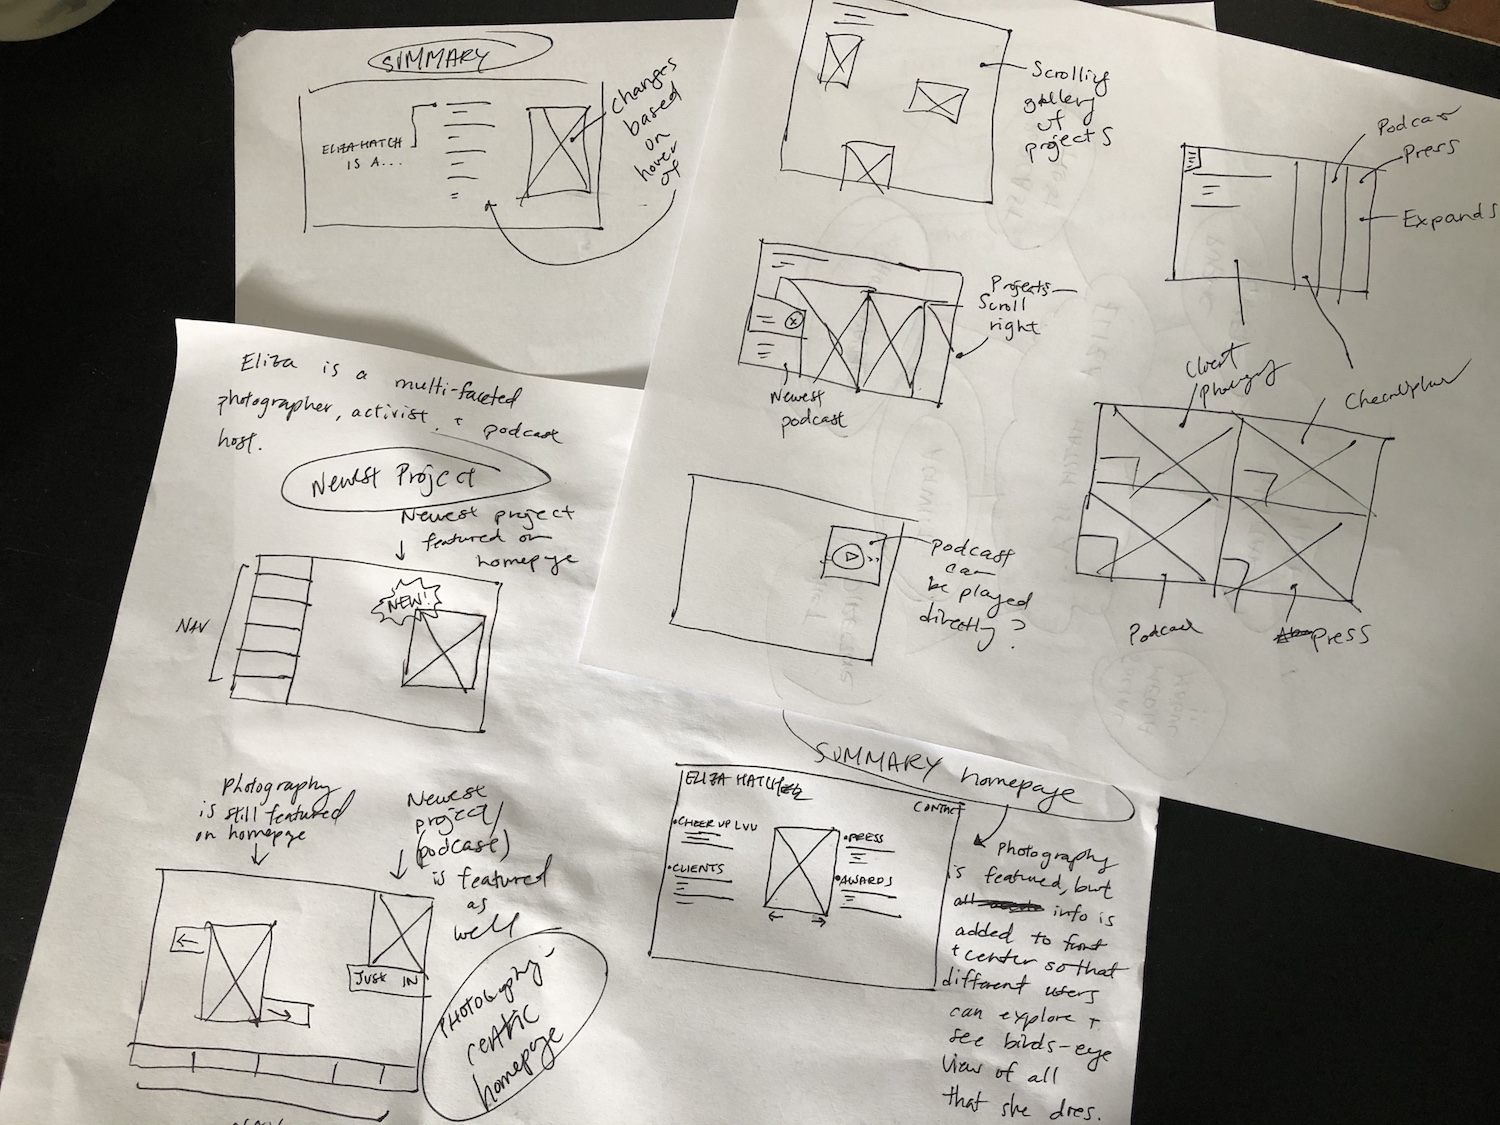 SUMMARY
ELIZA HATCH
IS A...
changes
based
on
hover
of
Scrolling
gallery
of
projects
Podcast
Press
Expands
Projects—
Scroll
right
Newest
podcast
Client
Podcast
Press
podcast
can
be played
directly?
Eliza is a multi-faceted
photographer, activist, + podcast
host.
Newest Project
Newest project
featured on
homepage
NEW!
NAV
Photography
is still featured
on homepage
Newest
project/
(podcast)
is featured
as
well
JUST IN
Photography-
centric
homepage
SUMMARY homepage
ELIZA HATCH
CONTACT
•CHEER UP LUV
•CLIENTS
•PRESS
•AWARDS
Photography
is featured, but
info is
added to front
+ center so that
different users
can explore +
see birds-eye
view of all
that she does.